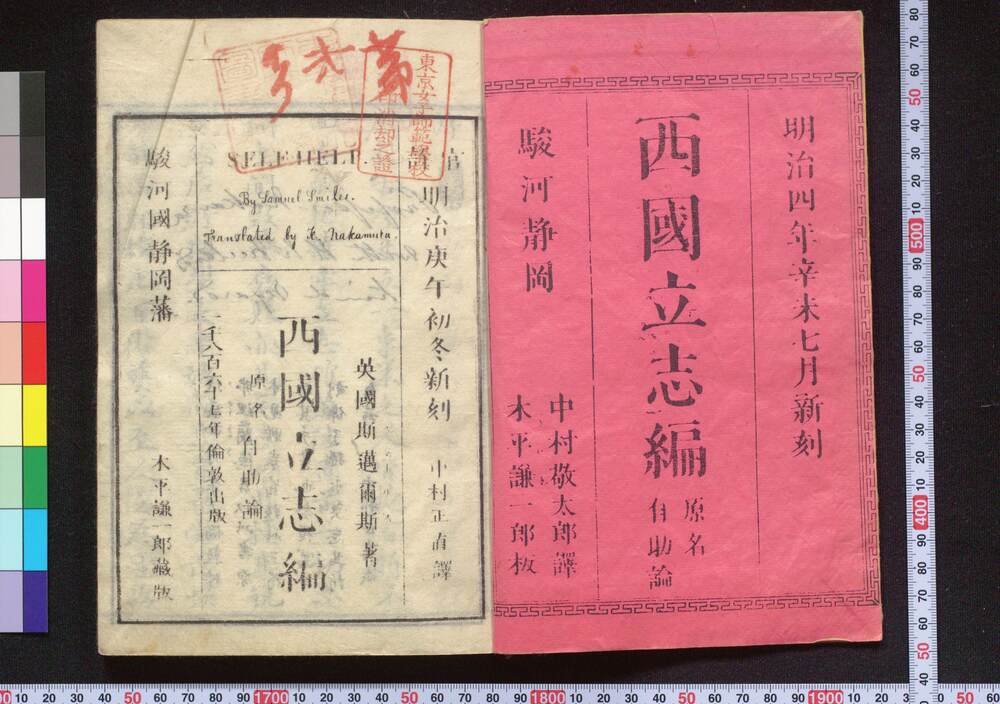 明治四年辛未七月新刻
西國立志編
原名
自助論
駿河静岡
中村敬太郎譯
木平謙一郎板
東京女子師範學校
官許
明治庚午初冬新刻
中村正直譯
SELF HELP.
By Samuel Smiles.
Translated by K. Nakamura.
英國斯邁爾斯著
西國立志編
原名 自助論
一千八百六十七年倫敦出版
駿河國静岡藩
木平謙一郎藏版